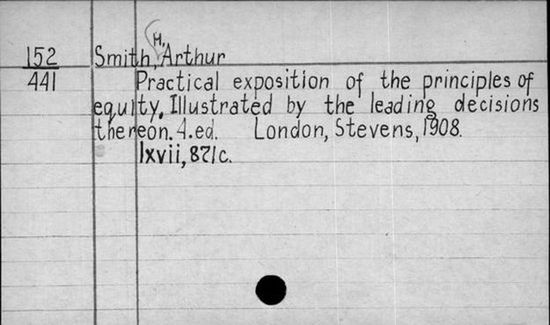 H.
152 Smith, Arthur
441 Practical exposition of the principles of
equity. Illustrated by the leading decisions
thereon. 4.ed. London, Stevens, 1908.
lxvii, 871c.